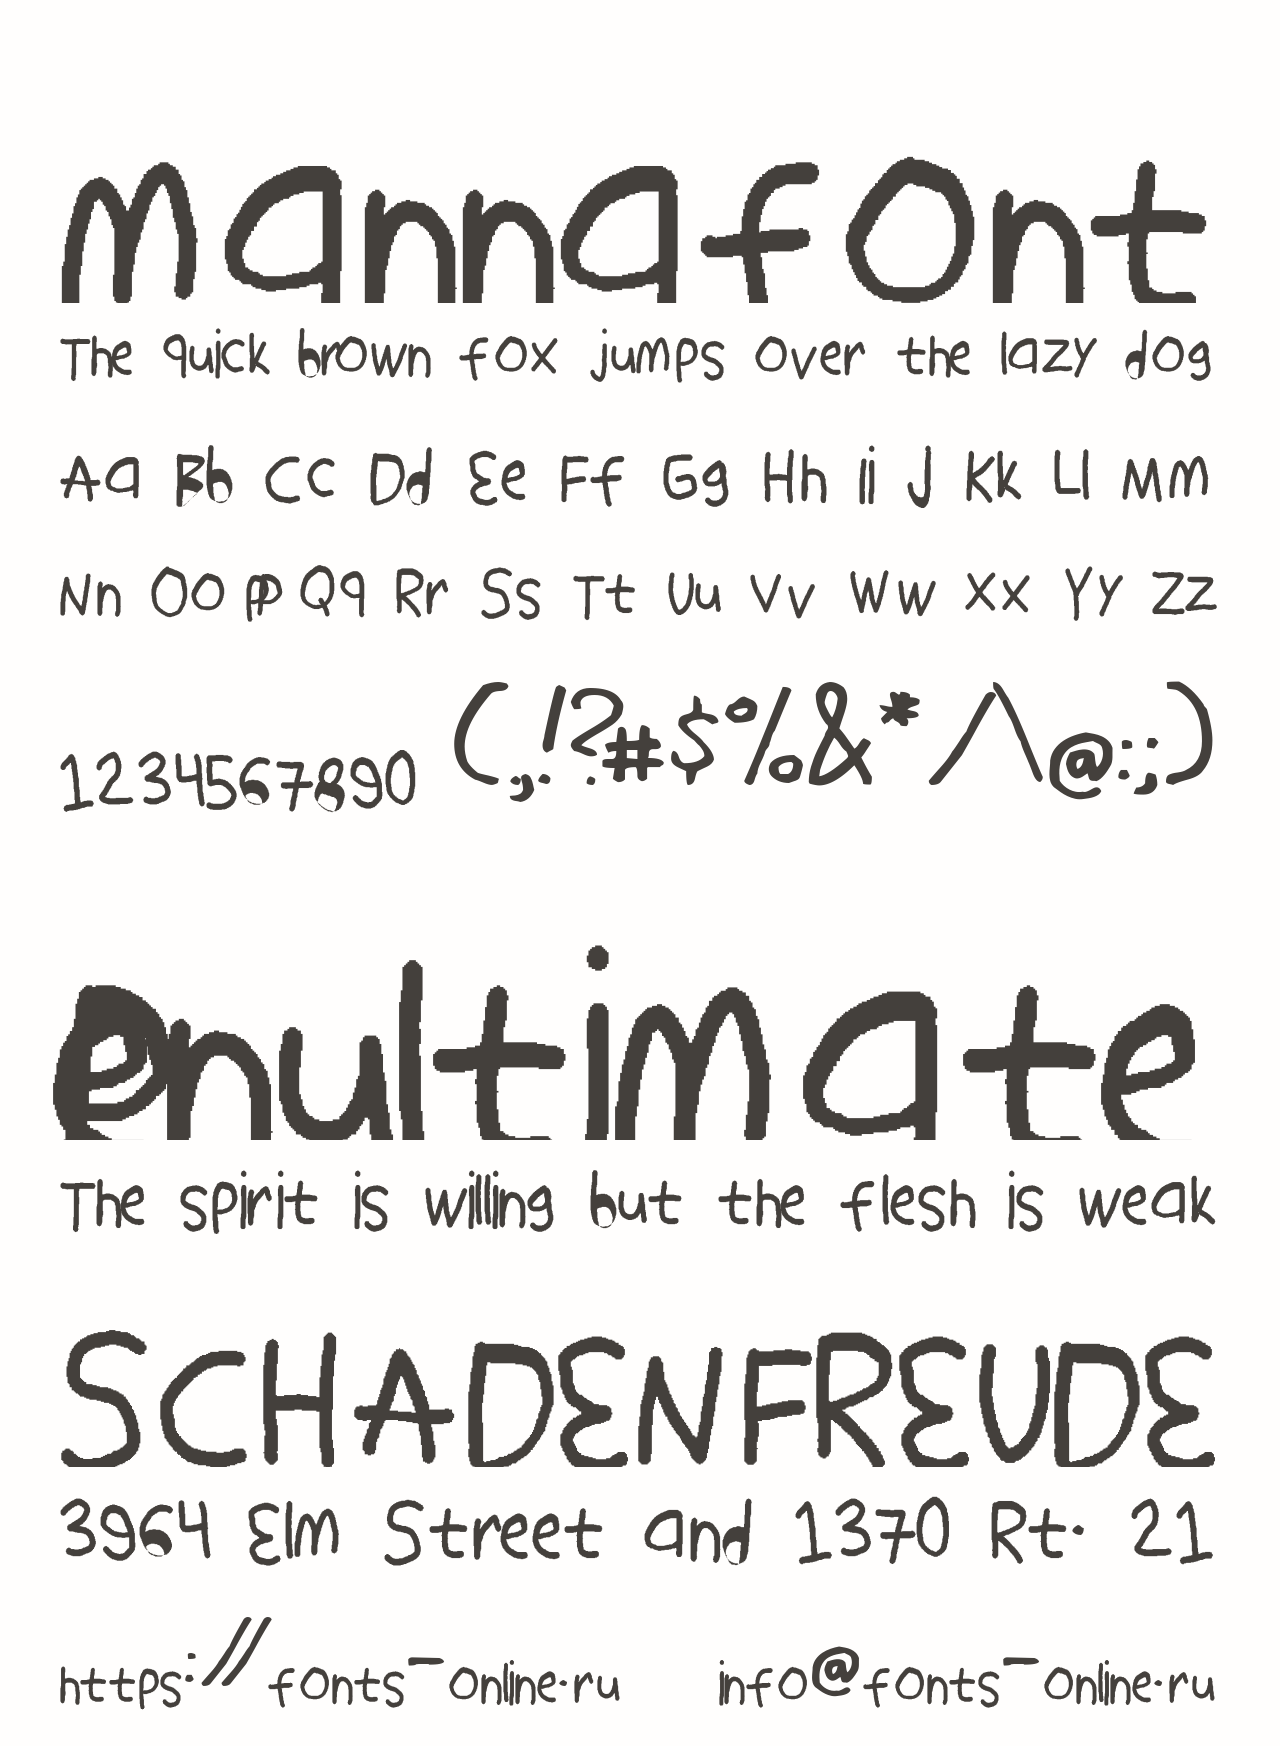 mannafont
The quick brown fox jumps over the lazy dog
Aa Bb Cc Dd Ee Ff Gg Hh Ii J Kk Ll Mm
Nn Oo Pp Qq Rr Ss Tt Uu Vv Ww Xx Yy Zz
1234567890 (,.!?#$%&*/\@:;)
Penultimate
The spirit is willing but the flesh is weak
SCHADENFREUDE
3964 Elm Street and 1370 Rt. 21
https://fonts-online.ru info@fonts-online.ru